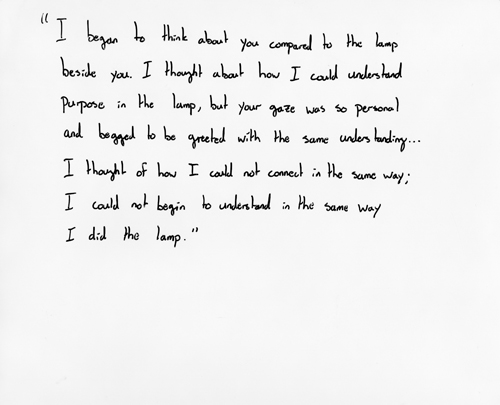 "I began to think about you compared to the lamp
beside you. I thought about how I could understand
purpose in the lamp, but your gaze was so personal
and begged to be greeted with the same understanding...
I thought of how I could not connect in the same way;
I could not begin to understand in the same way
I did the lamp."